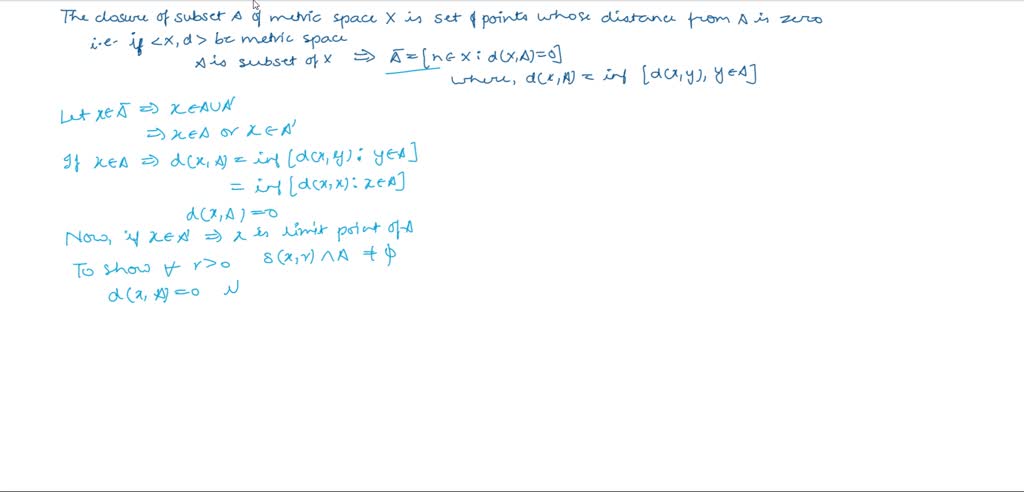 The closure of subset A of metric space X is set of points whose distance from A is zero
i.e. if <X, d> be metric space
A is subset of X ⇒ Ā = [n ∈ X : d(X, A) = 0]
where, d(x, A) = inf [d(x, y), y ∈ A]
Let x ∈ Ā ⇒ x ∈ A ∪ A'
⇒ x ∈ A or x ∈ A'
If x ∈ A ⇒ d(x, A) = inf [d(x, y) : y ∈ A]
= inf [d(x, x) : x ∈ A]
d(x, A) = 0
Now, if x ∈ A' ⇒ x is limit point of A
To show ∀ r > 0 S(x, r) ∧ A ≠ ϕ
d(x, A) = 0